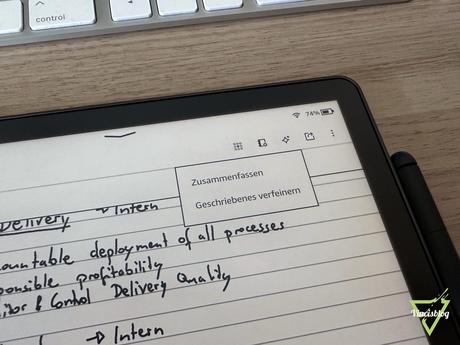 control
74%
Zusammenfassen
Geschriebenes verfeinern
Delivery → Intern
ountable deployment of all processes
ponsible profitability
itor & Control Delivery Quality
→ Intern
Vincisblog